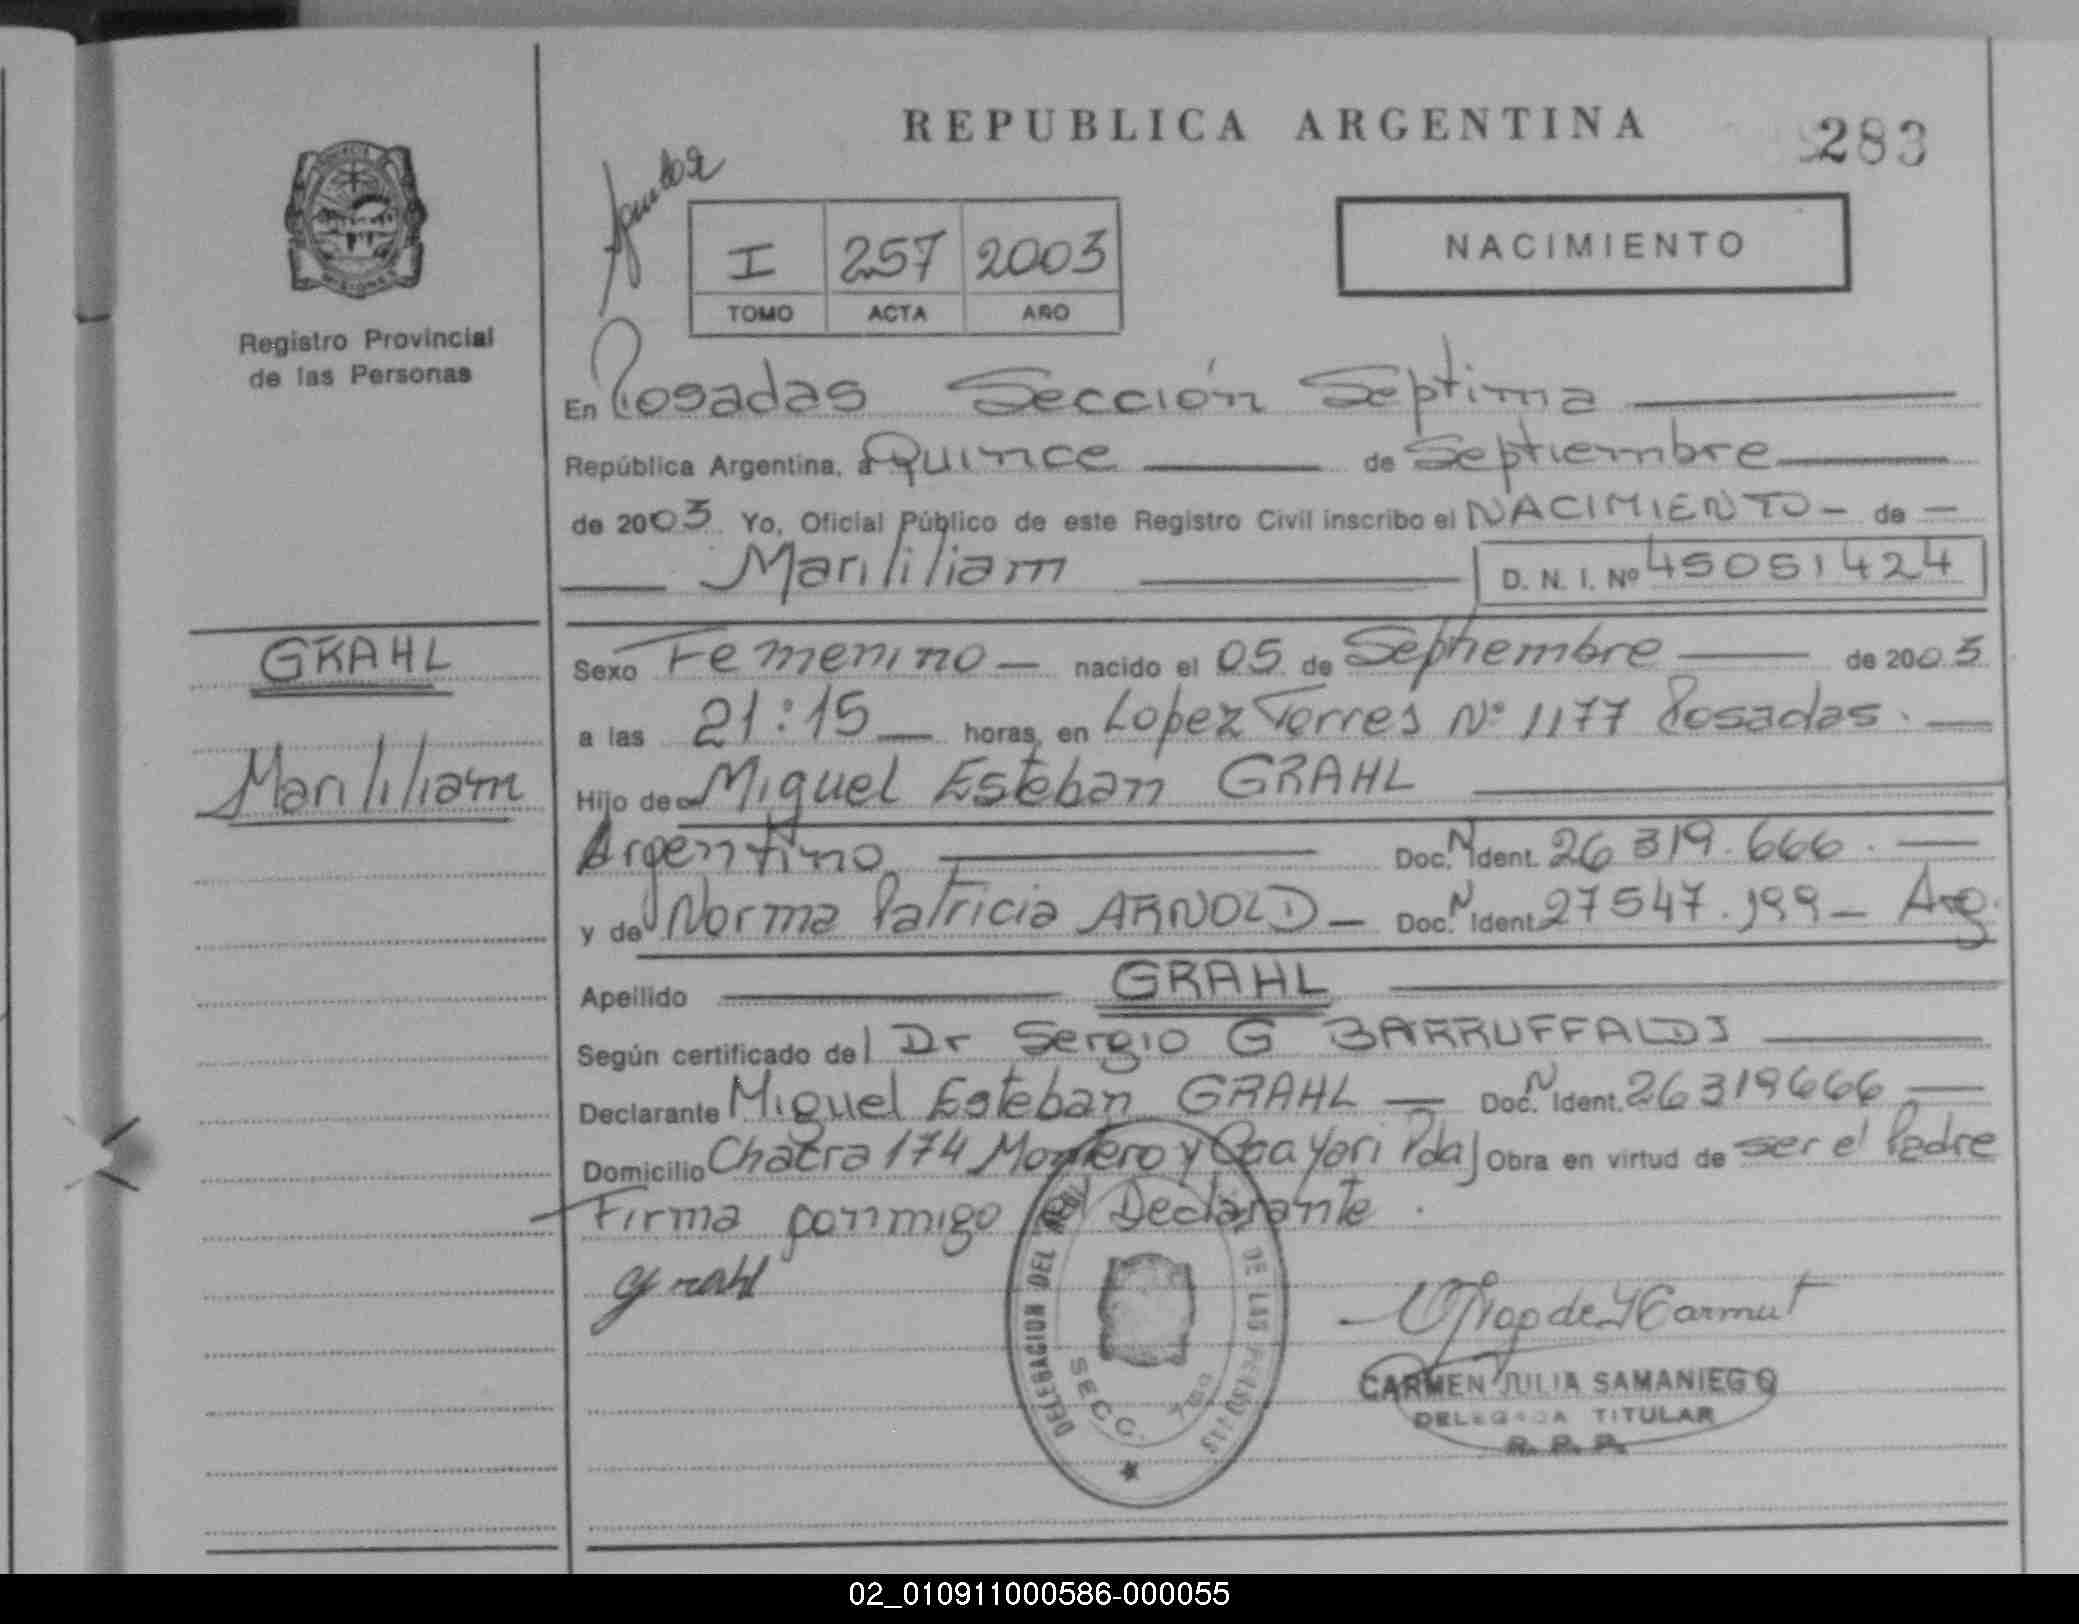 REPUBLICA ARGENTINA
283
I 257 2003
TOMO ACTA AÑO
NACIMIENTO
Registro Provincial
de las Personas
En Posadas Sección Septima
República Argentina, a Quince de Septiembre
de 2003 Yo, Oficial Público de este Registro Civil inscribo el NACIMIENTO - de -
Marililiam D. N. I. Nº 45051424
GRAHL
Marililiam
Sexo Femenino - nacido el 05 de Septiembre de 2003
a las 21:15 horas, en Lopez Torres Nº 1177 Posadas.
Hijo de Miguel Esteban GRAHL
Argentino Doc. N Ident. 26 319.666.
y de Norma Patricia ARNOLD - Doc. N Ident. 27547.199 - Arg.
Apellido GRAHL
Según certificado del Dr Sergio G BARRUFFALDI
Declarante Miguel Esteban GRAHL - Doc. N Ident. 26319666
Domicilio Chacra 174 Montero y Yari Pdas Obra en virtud de ser el Padre
Firma conmigo el Declarante.
Grahl
DELEGACION DEL DE LAS PERSONAS
SECC. 7
CARMEN JULIA SAMANIEGO
DELEGADA TITULAR
R. P. P.
02_010911000586-000055